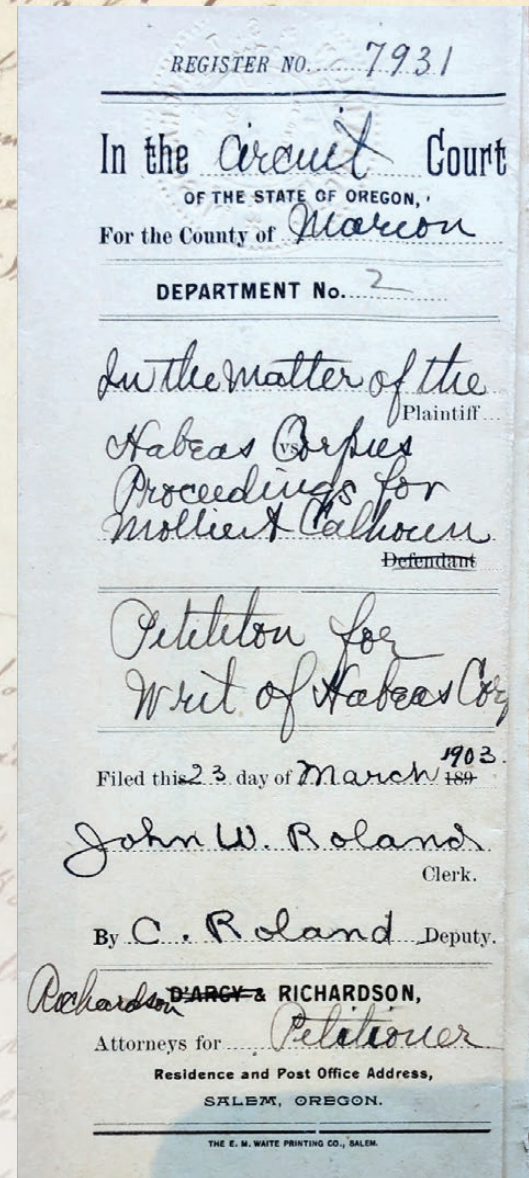 REGISTER NO. 7931
In the Circuit Court
OF THE STATE OF OREGON,
For the County of Marion
DEPARTMENT No. 2
In the Matter of the
Plaintiff
Habeas Corpus
vs
Proceedings for
Mollie A Calhoun
Defendant
Petition for
Writ of Habeas Corp
1903.
Filed this 23 day of March 189
John W. Roland
Clerk.
By C. Roland Deputy.
Richardson D'ARCY & RICHARDSON,
Attorneys for Petitioner
Residence and Post Office Address,
SALEM, OREGON.
THE E. M. WAITE PRINTING CO., SALEM.